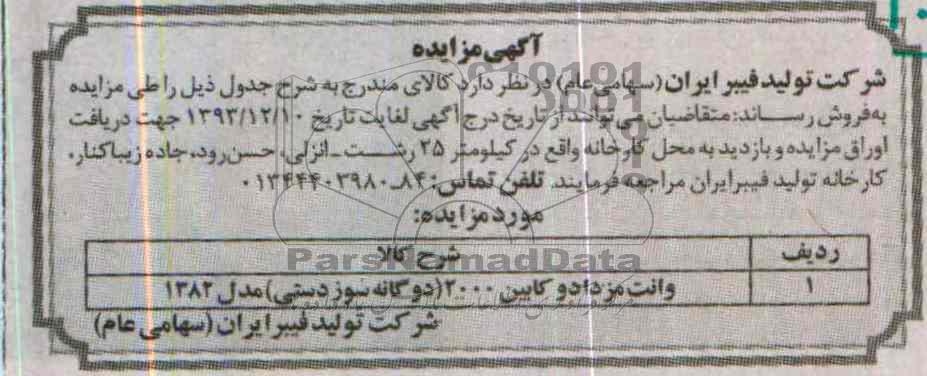 آگهی مزایده
شرکت تولید فیبر ایران (سهامی عام) در نظر دارد کالای مندرج به شرح جدول ذیل را طی مزایده
به‌فروش رساند: متقاضیان می‌توانند از تاریخ درج آگهی لغایت تاریخ ۱۳۹۳/۱۲/۱۰ جهت دریافت
اوراق مزایده و بازدید به محل کارخانه واقع در کیلومتر ۲۵ رشت ـ انزلی، حسن‌رود، جاده زیباکنار،
کارخانه تولید فیبر ایران مراجعه فرمایند. تلفن تماس: ۸۴ـ۰۱۳۴۴۴۰۳۹۸۰
مورد مزایده:
ردیف شرح کالا
ParsNamadData
۱ وانت مزدا دو کابین ۲۰۰۰ (دوگانه سوز دستی) مدل ۱۳۸۲
شرکت تولید فیبر ایران (سهامی عام)